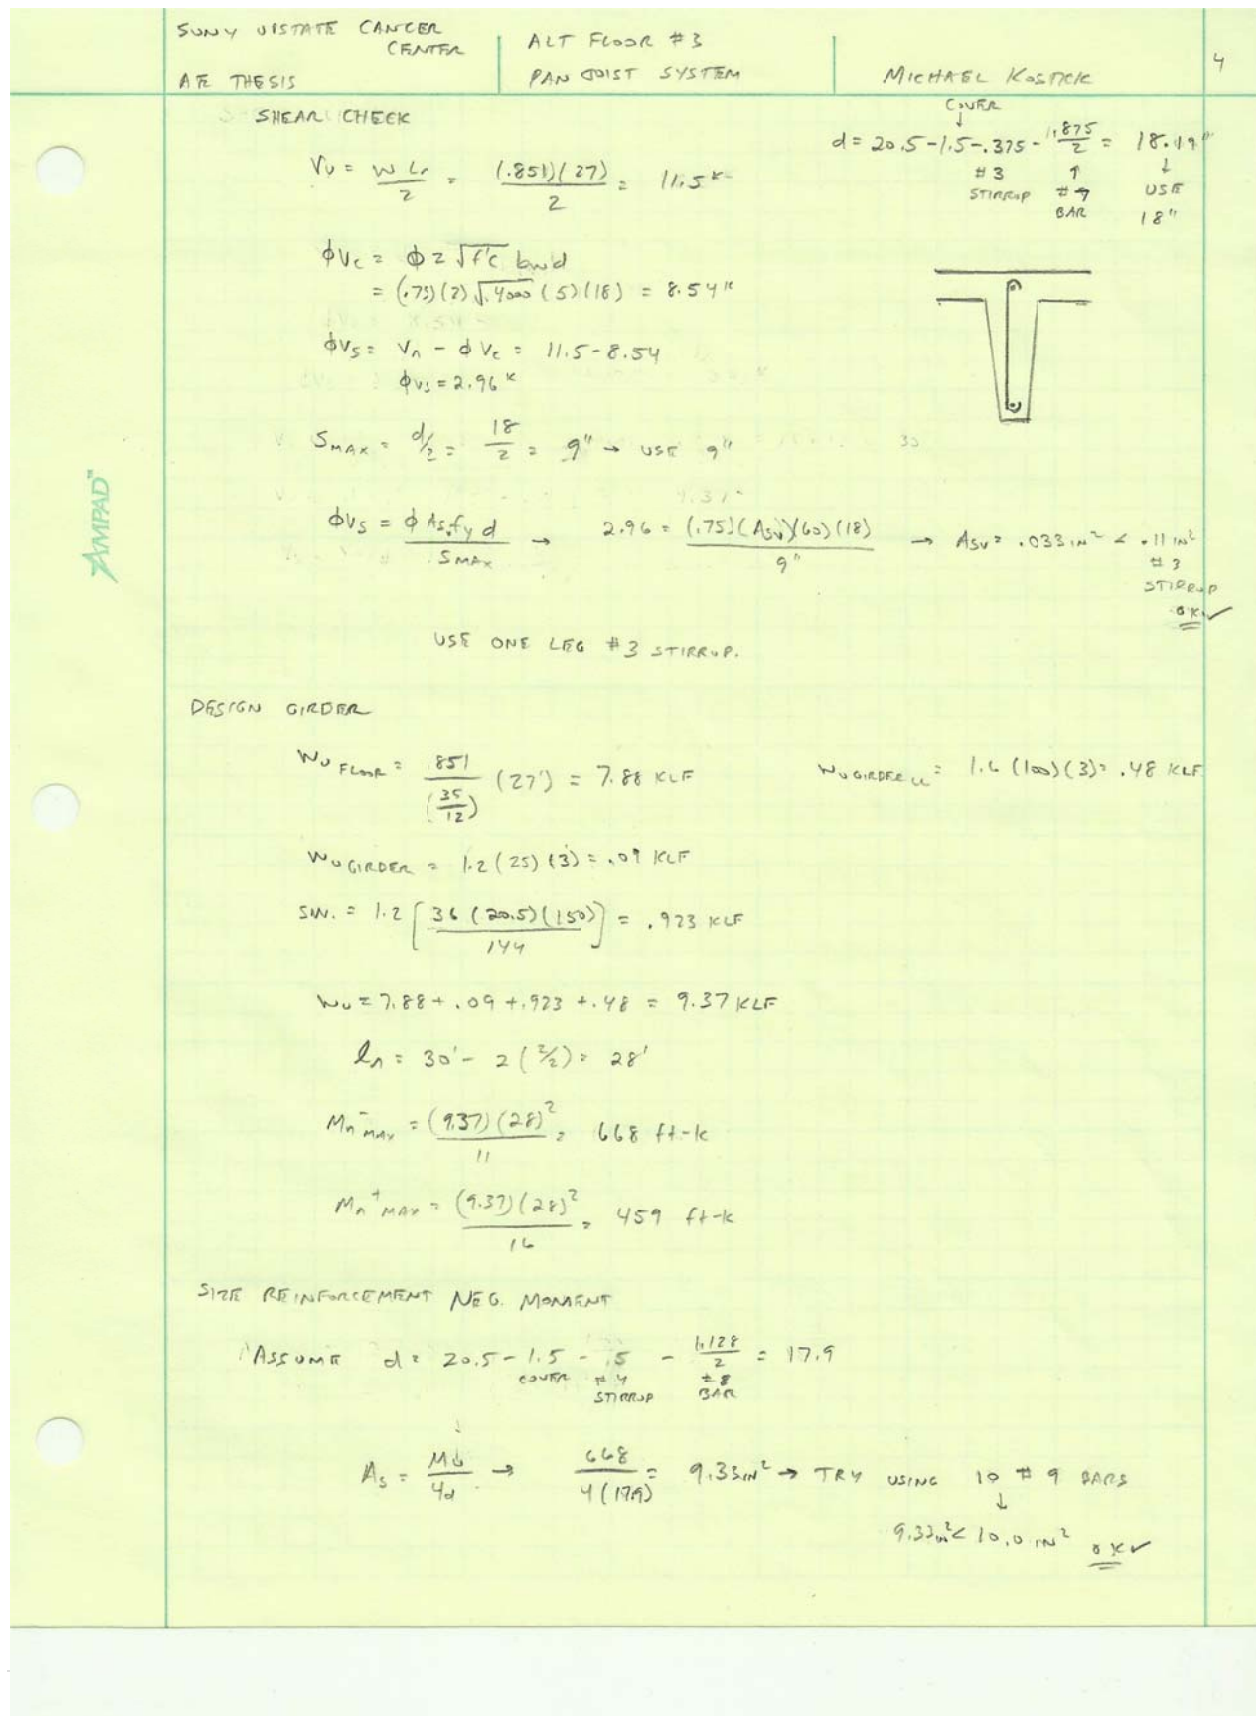 SUNY UPSTATE CANCER CENTER
AE THESIS
ALT FLOOR #3
PAN JOIST SYSTEM
MICHAEL KOSTICK
4
SHEAR CHECK
Vu = w Ln / 2 = (.851)(27) / 2 = 11.5 K
COVER
d = 20.5 - 1.5 - .375 - .875/2 = 18.19"
#3 STIRRUP
#7 BAR
USE 18"
φVc = φ 2 √f'c bwd
= (.75)(2)√4000 (5)(18) = 8.54 K
φVs = Vn - φVc = 11.5 - 8.54
φVs = 2.96 K
SMAX = d/2 = 18/2 = 9" → USE 9"
φVs = φ Asv fy d / SMAX → 2.96 = (.75)(Asv)(60)(18) / 9" → Asv = .033 IN² < .11 IN²
#3 STIRRUP
OK ✓
USE ONE LEG #3 STIRRUP.
AMPAD™
DESIGN GIRDER
Wu FLOOR = 851 / (35/12) (27') = 7.88 KLF
Wu GIRDER LL = 1.6 (100)(3) = .48 KLF
Wu GIRDER = 1.2 (25)(3) = .09 KLF
SW. = 1.2 [36 (20.5)(150) / 144] = .923 KLF
Wu = 7.88 + .09 + .923 + .48 = 9.37 KLF
ln = 30' - 2 (2/2) = 28'
Mn⁻MAX = (9.37)(28)² / 11 = 668 ft-k
Mn⁺MAX = (9.37)(28)² / 16 = 459 ft-k
SIZE REINFORCEMENT NEG. MOMENT
ASSUME d = 20.5 - 1.5 - .5 - 1.128/2 = 17.9
COVER
#4 STIRRUP
#8 BAR
As = Mu / 4d → 668 / 4(17.9) = 9.33 IN² → TRY USING 10 #9 BARS
9.33 in² < 10.0 IN² OK ✓